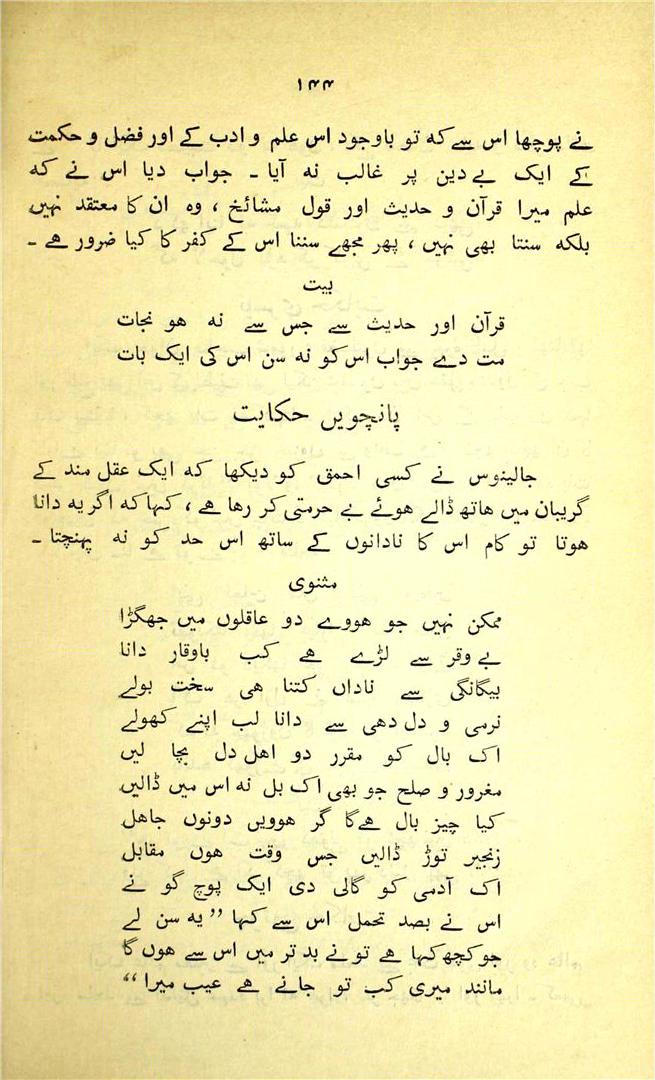 ۱۴۴
نے پوچھا اس سے کہ تو باوجود اس علم و ادب کے اور فضل و حکمت
کے ایک بے دین پر غالب نہ آیا ۔ جواب دیا اس نے کہ
علم میرا قرآن و حدیث اور قول مشائخ ، وہ ان کا معتقد نہیں
بلکہ سنتا بھی نہیں ، پھر مجھے سننا اس کے کفر کا کیا ضرور ہے ۔
بیت
قرآن اور حدیث سے جس سے نہ ہو نجات
مت دے جواب اس کو نہ سن اس کی ایک بات
پانچویں حکایت
جالینوس نے کسی احمق کو دیکھا کہ ایک عقل مند کے
گریبان میں ہاتھ ڈالے ہوئے بے حرمتی کر رہا ہے ، کہا کہ اگر یہ دانا
ہوتا تو کام اس کا نادانوں کے ساتھ اس حد کو نہ پہنچتا ۔
مثنوی
ممکن نہیں جو ہووے دو عاقلوں میں جھگڑا
بے وقر سے لڑے ہے کب باوقار دانا
بیگانگی سے ناداں کتنا ہی سخت بولے
نرمی و دل دہی سے دانا لب اپنے کھولے
اک بال کو مقرر دو اہل دل بچا لیں
مغرور و صلح جو بھی اک بل نہ اس میں ڈالیں
کیا چیز بال ہے گا گر ہوویں دونوں جاہل
زنجیر توڑ ڈالیں جس وقت ہوں مقابل
اک آدمی کو گالی دی ایک پوچ گو نے
اس نے بصد تحمل اس سے کہا ”یہ سن لے
جو کچھ کہا ہے تو نے بد تر میں اس سے ہوں گا
مانند میری کب تو جانے ہے عیب میرا“